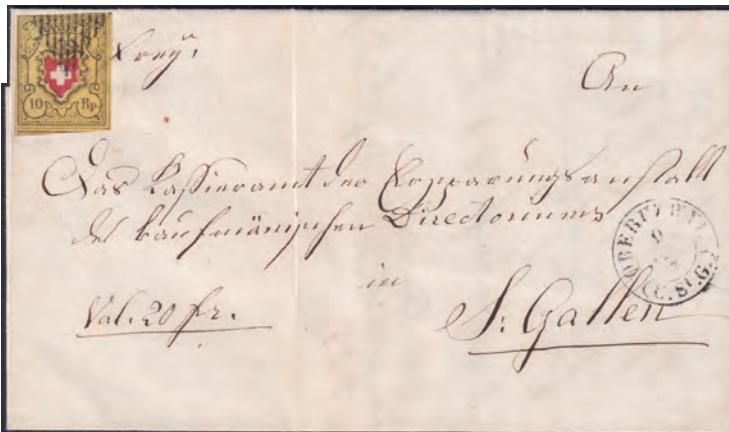 10 Rp.
An
Das Kassieramt der Ersparungsanstalt
des kaufmänischen Directoriums
in
Val. 20 fr.
St. Gallen
OBERUZWYL
9
(C. St. G.)